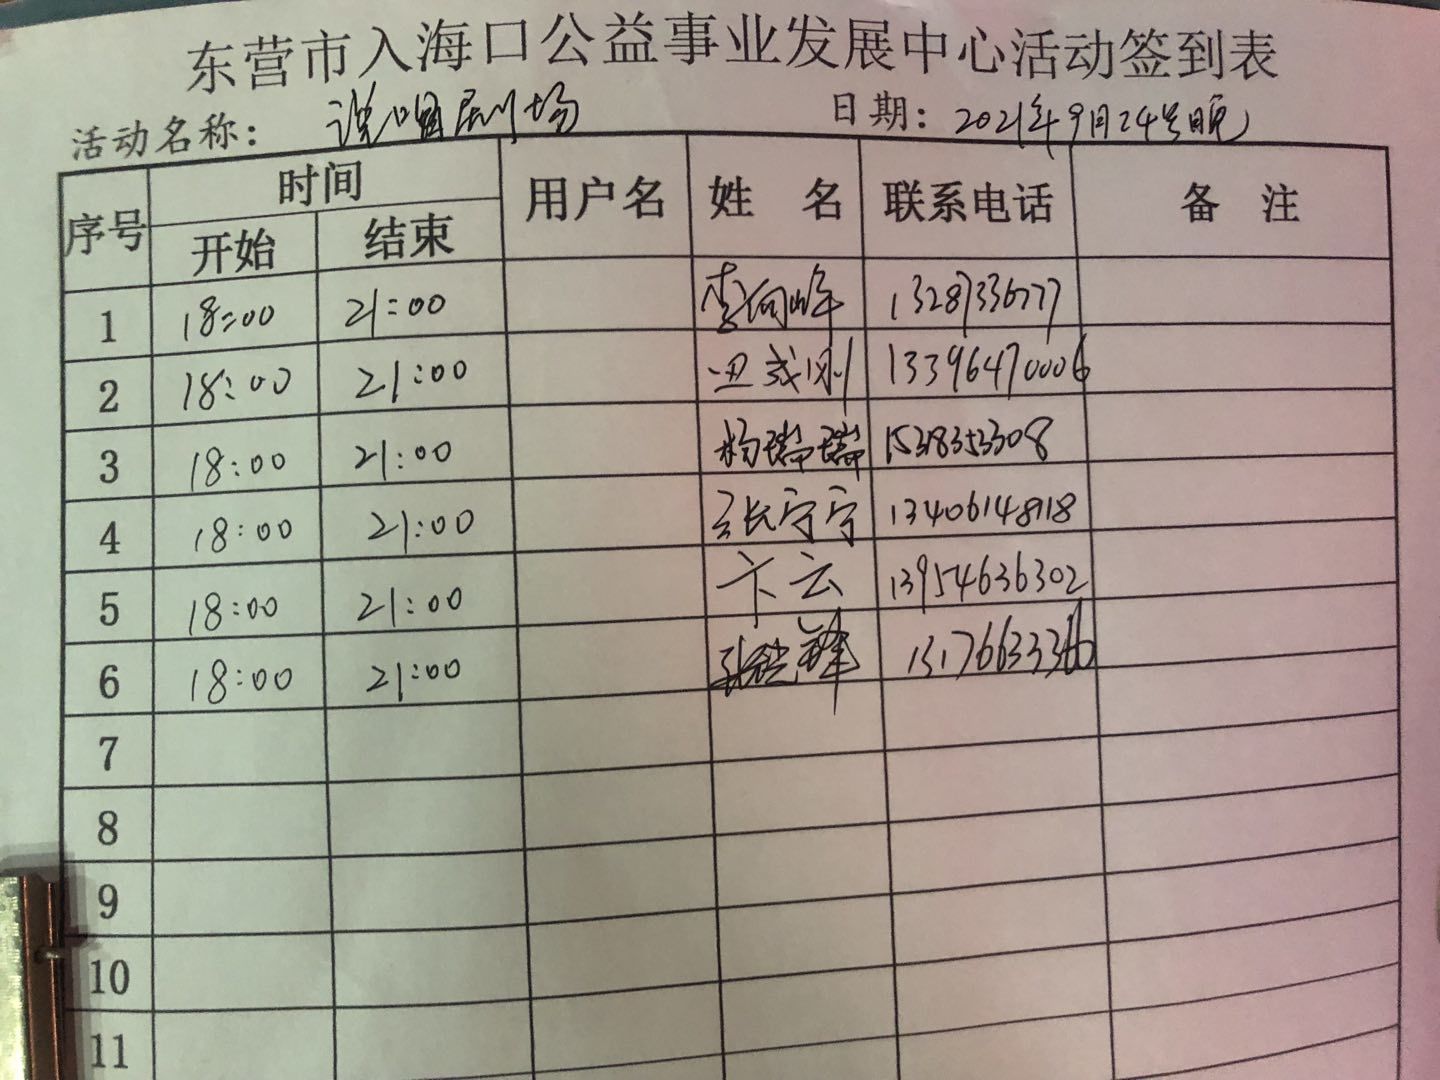 东营市入海口公益事业发展中心活动签到表
活动名称： 说唱剧场 日期： 2021年9月24号晚
序号 时间 用户名 姓 名 联系电话 备 注
开始 结束
1 18:00 21:00 李向峰 13287336777
2 18:00 21:00 13396470006
3 18:00 21:00 杨瑞瑞 15318353308
4 18:00 21:00 张宁宁 13406148118
5 18:00 21:00 卞云 13954636302
6 18:00 21:00 13176633366
7
8
9
10
11